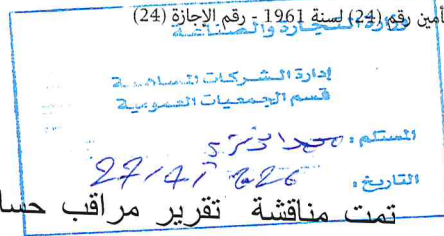 أمين رقم (24) لسنة 1961 - رقم الإجازة (24)
وزارة التجارة والصناعة
إدارة الشركات المساهمة
قسم الجمعيات العمومية
المستلم :
التاريخ :
تمت مناقشة تقرير مراقب حسا